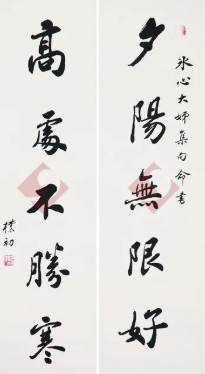 夕陽無限好
冰心大姊集句命書
高處不勝寒
樸初